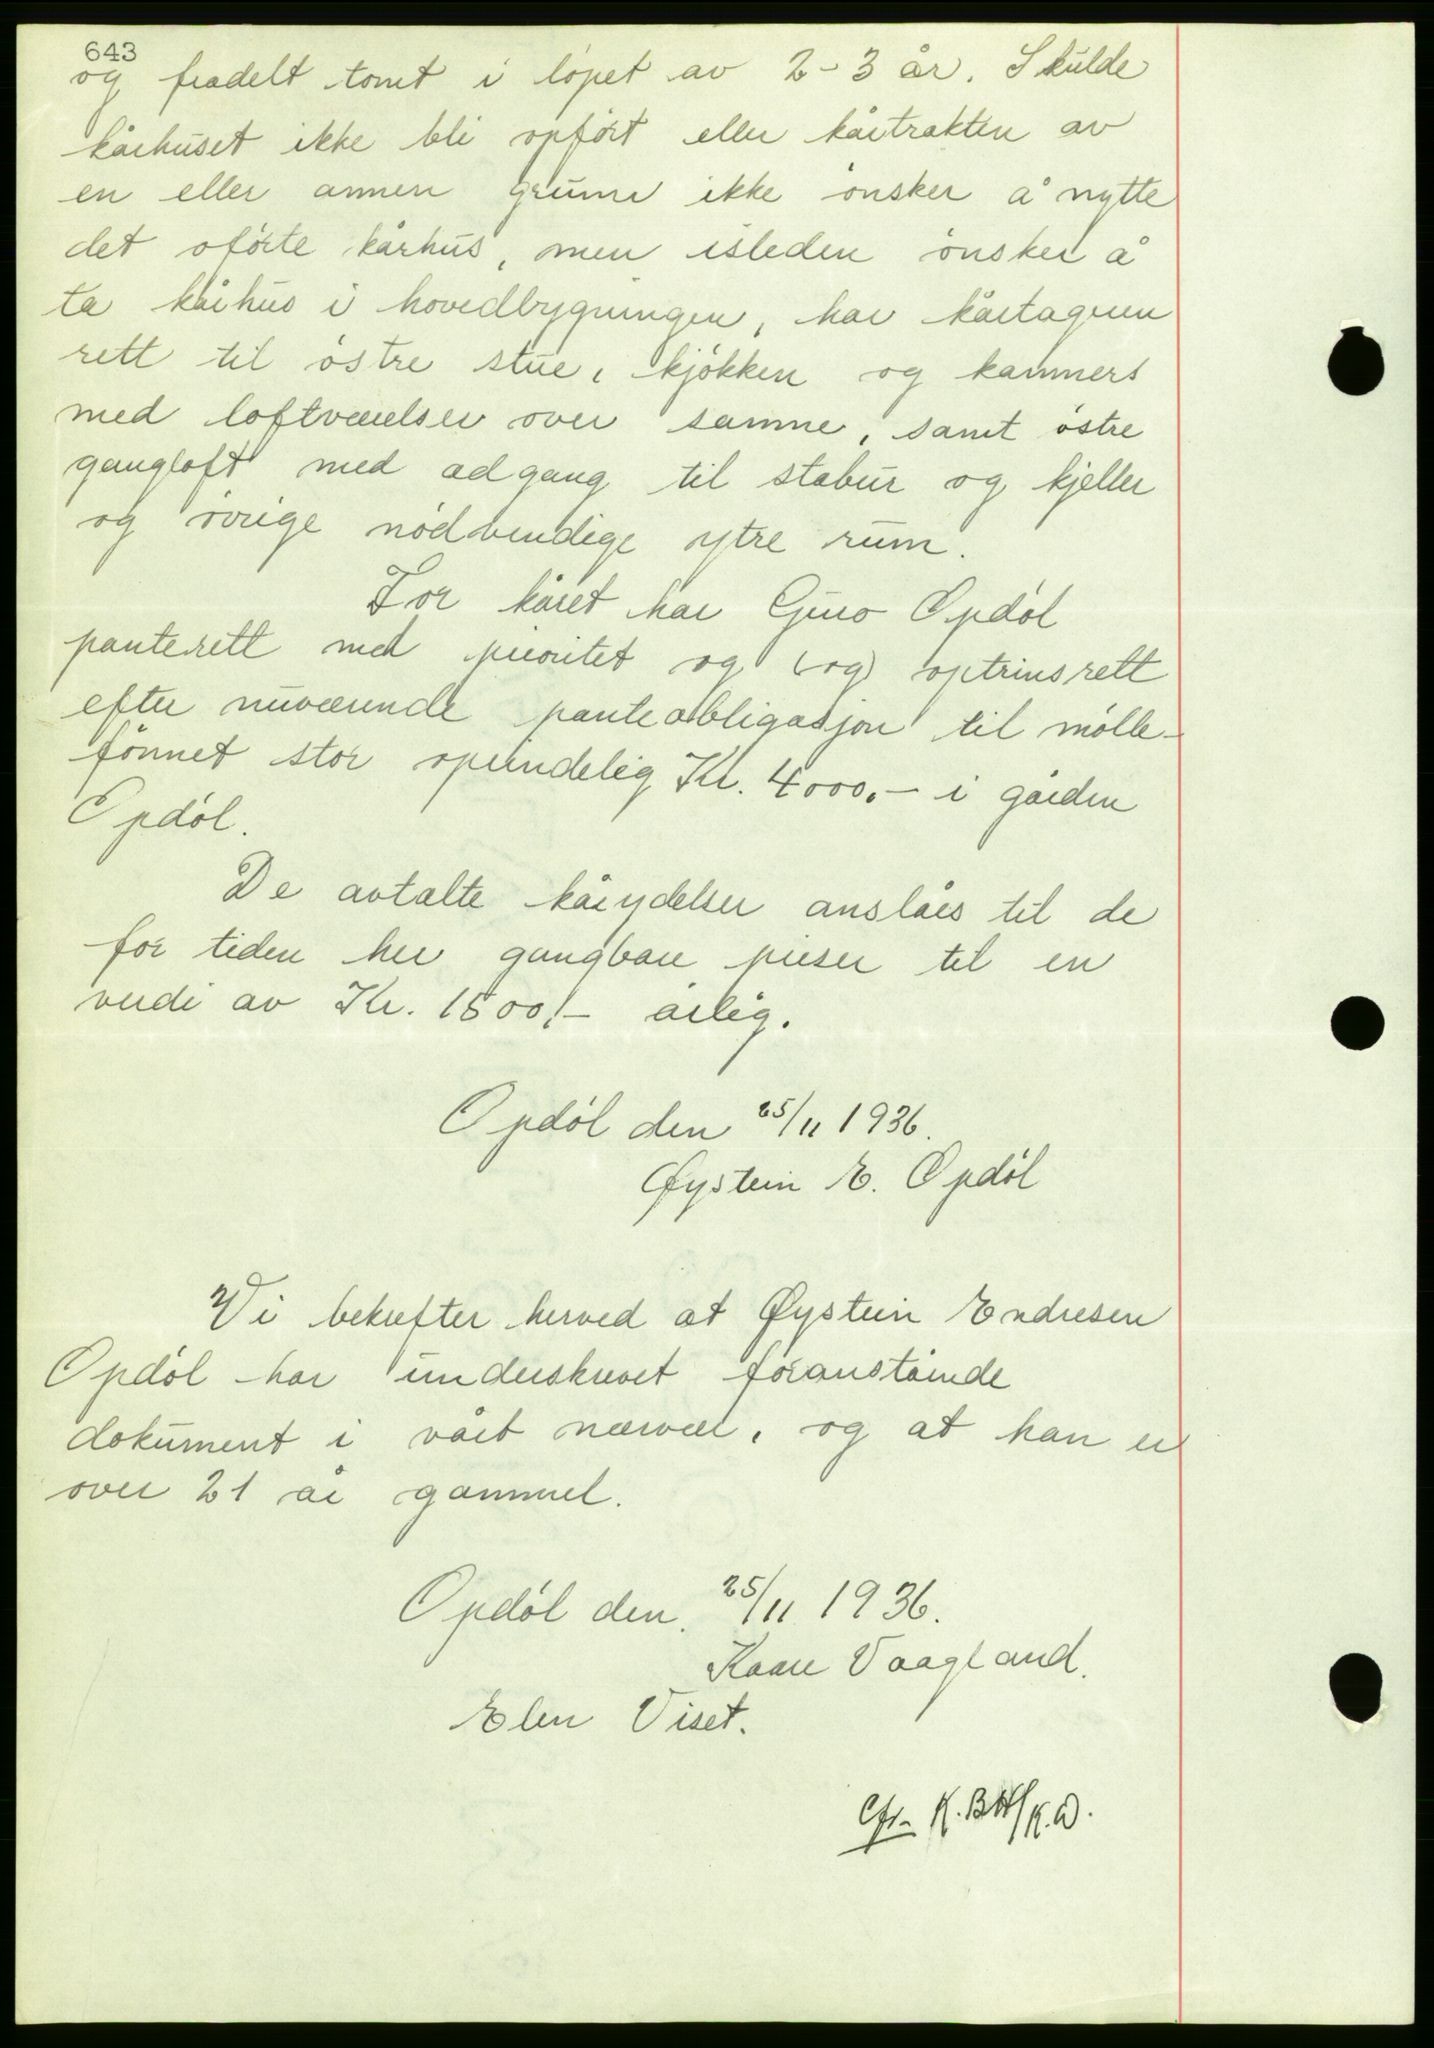 643
og fradelt tomt i löpet av 2-3 år. Skulde
kårhuset ikke bli opfört eller kårtrakten av
en eller annen grunn ikke önsker å nytte
det oförte kårhus, men isteden önsker å
ta kårhus i hovedbygningen, har kårtageren
rett til östre stue, kjökken og kammers
med loftværelser over samme, samt östre
gangloft med adgang til stabur og kjeller
og övrige nödvendige ytre rum.
For kåret har Guro Opdöl
panterett med prioritet og (og) optrinsrett
efter nuværende panteobligasjon til mölle-
fonnet stor oprindelig Kr. 4000,- i gården
Opdöl.
De avtalte kårydelser anslåes til de
for tiden her gangbare priser til en
verdi av Kr. 1500,- årlig.
Opdöl den 25/11 1936.
Øystein E. Opdöl
Vi bekrefter herved at Øystein Endresen
Opdöl har underskrevet foranstående
dokument i vårt nærvær, og at han er
over 21 år gammel.
Opdöl den. 25/11 1936.
Kaare Vaagland.
Elen Viset.